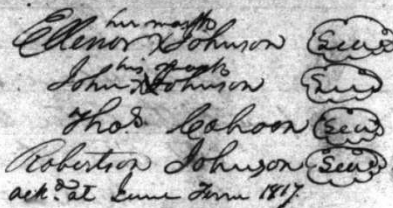 her mark
Ellenor X Johnson Seal
his mark
John X Johnson Seal
Thos. Cahoon Seal
Robertson Johnson Seal
ackd. at June Term 1817.